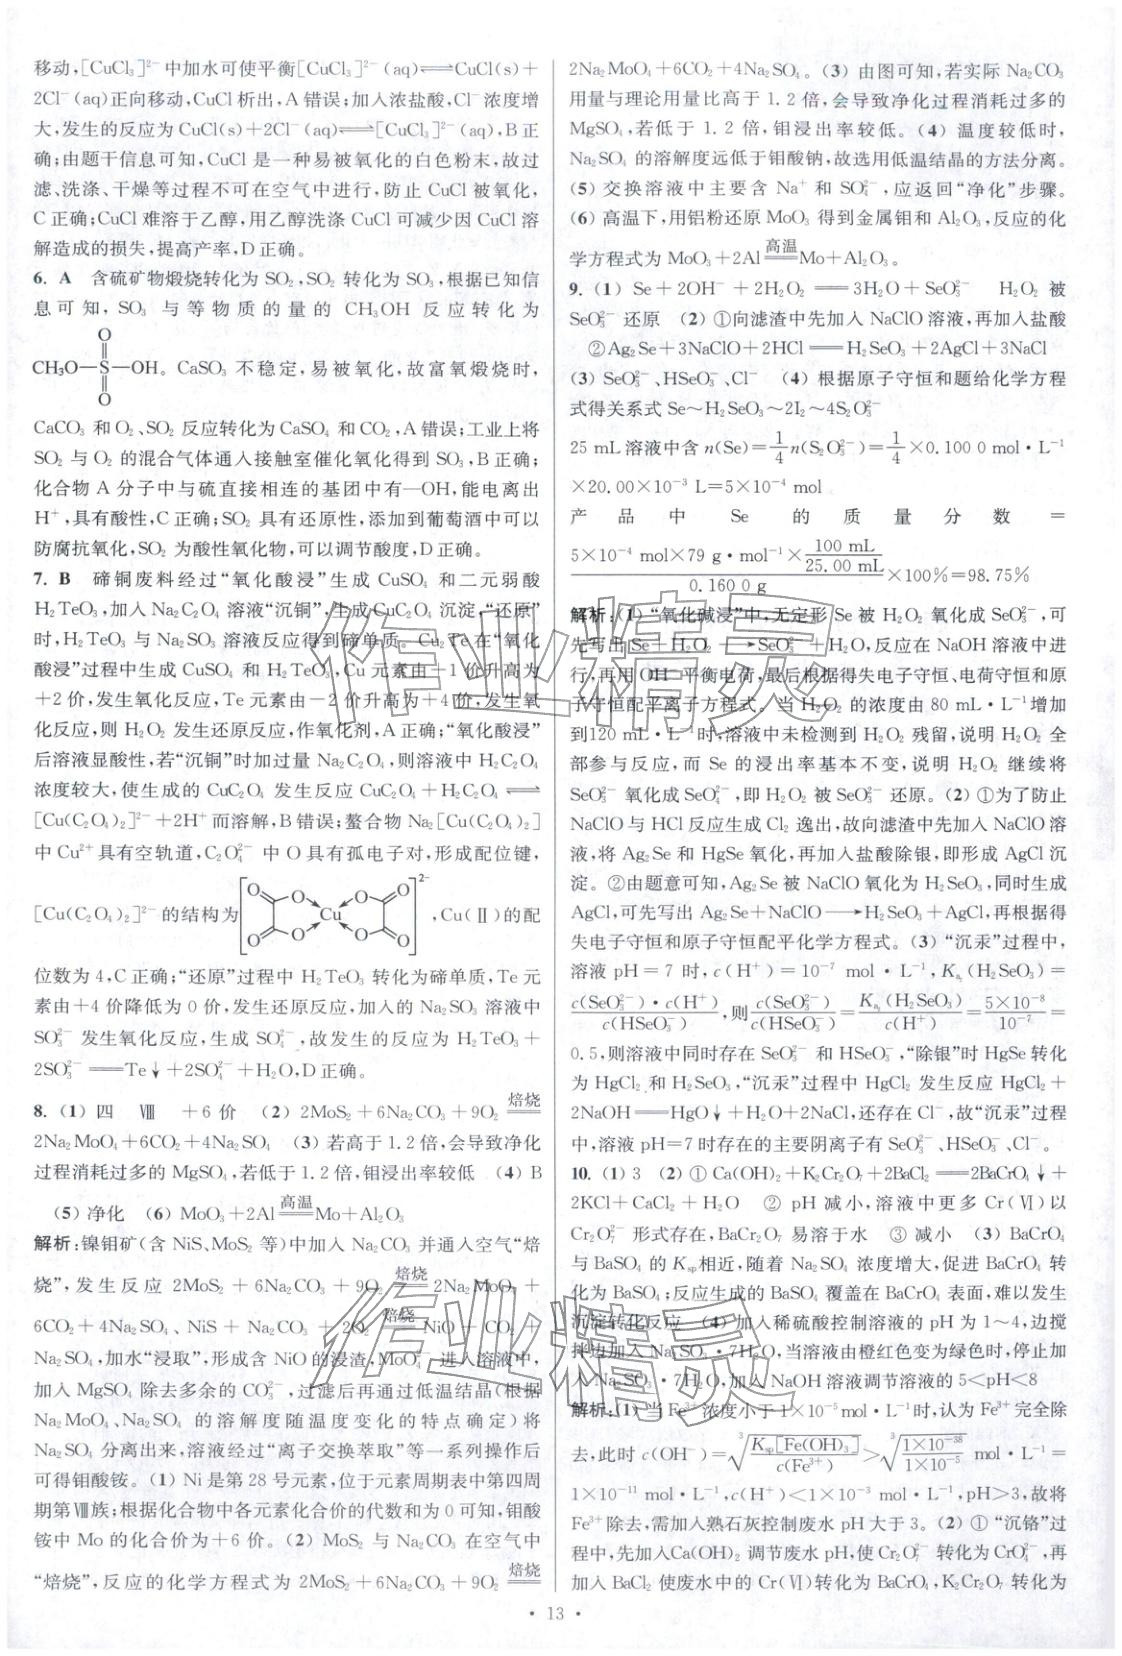 移动,[CuCl₃]²⁻中加水可使平衡[CuCl₃]²⁻(aq)⇌CuCl(s)+
2Cl⁻(aq)正向移动,CuCl析出,A错误;加入浓盐酸,Cl⁻浓度增
大,发生的反应为CuCl(s)+2Cl⁻(aq)⇌[CuCl₃]²⁻(aq),B正
确;由题干信息可知,CuCl是一种易被氧化的白色粉末,故过
滤、洗涤、干燥等过程不可在空气中进行,防止CuCl被氧化,
C正确;CuCl难溶于乙醇,用乙醇洗涤CuCl可减少因CuCl溶
解造成的损失,提高产率,D正确。
6. A 含硫矿物煅烧转化为SO₂,SO₂转化为SO₃,根据已知信
息可知,SO₃与等物质的量的CH₃OH反应转化为
O
CH₃O—S—OH。CaSO₃不稳定,易被氧化,故富氧煅烧时,
O
CaCO₃和O₂、SO₂反应转化为CaSO₄和CO₂,A错误;工业上将
SO₂与O₂的混合气体通入接触室催化氧化得到SO₃,B正确;
化合物A分子中与硫直接相连的基团中有—OH,能电离出
H⁺,具有酸性,C正确;SO₂具有还原性,添加到葡萄酒中可以
防腐抗氧化,SO₂为酸性氧化物,可以调节酸度,D正确。
7. B 碲铜废料经过“氧化酸浸”生成CuSO₄和二元弱酸
H₂TeO₃,加入Na₂C₂O₄溶液“沉铜”,生成CuC₂O₄沉淀,“还原”
时,H₂TeO₃与Na₂SO₃溶液反应得到碲单质。Cu₂Te在“氧化
酸浸”过程中生成CuSO₄和H₂TeO₃,Cu元素由+1价升高为
+2价,发生氧化反应,Te元素由-2价升高为+4价,发生氧
化反应,则H₂O₂发生还原反应,作氧化剂,A正确;“氧化酸浸”
后溶液显酸性,若“沉铜”时加过量Na₂C₂O₄,则溶液中H₂C₂O₄
浓度较大,使生成的CuC₂O₄发生反应CuC₂O₄+H₂C₂O₄⇌
[Cu(C₂O₄)₂]²⁻+2H⁺而溶解,B错误;螯合物Na₂[Cu(C₂O₄)₂]
中Cu²⁺具有空轨道,C₂O₄²⁻中O具有孤电子对,形成配位键,
[Cu(C₂O₄)₂]²⁻的结构为[O O O O Cu O O O O]²⁻,Cu(Ⅱ)的配
位数为4,C正确;“还原”过程中H₂TeO₃转化为碲单质,Te元
素由+4价降低为0价,发生还原反应,加入的Na₂SO₃溶液中
SO₃²⁻发生氧化反应,生成SO₄²⁻,故发生的反应为H₂TeO₃+
2SO₃²⁻══Te↓+2SO₄²⁻+H₂O,D正确。
8. (1) 四 Ⅷ +6价 (2) 2MoS₂+6Na₂CO₃+9O₂ 焙烧══
2Na₂MoO₄+6CO₂+4Na₂SO₄ (3) 若高于1.2倍,会导致净化
过程消耗过多的MgSO₄,若低于1.2倍,钼浸出率较低 (4) B
(5) 净化 (6) MoO₃+2Al 高温══ Mo+Al₂O₃
解析:镍钼矿(含NiS、MoS₂等)中加入Na₂CO₃并通入空气“焙
烧”,发生反应2MoS₂+6Na₂CO₃+9O₂ 焙烧══ 2Na₂MoO₄+
6CO₂+4Na₂SO₄、NiS+Na₂CO₃+2O₂ 焙烧══ NiO+CO₂+
Na₂SO₄,加水“浸取”,形成含NiO的浸渣,MoO₄²⁻进入溶液中,
加入MgSO₄除去多余的CO₃²⁻,过滤后再通过低温结晶(根据
Na₂MoO₄、Na₂SO₄的溶解度随温度变化的特点确定)将
Na₂SO₄分离出来,溶液经过“离子交换萃取”等一系列操作后
可得钼酸铵。(1) Ni是第28号元素,位于元素周期表中第四周
期第Ⅷ族;根据化合物中各元素化合价的代数和为0可知,钼酸
铵中Mo的化合价为+6价。(2) MoS₂与Na₂CO₃在空气中
“焙烧”,反应的化学方程式为2MoS₂+6Na₂CO₃+9O₂ 焙烧══
2Na₂MoO₄+6CO₂+4Na₂SO₄。(3) 由图可知,若实际Na₂CO₃
用量与理论用量比高于1.2倍,会导致净化过程消耗过多的
MgSO₄,若低于1.2倍,钼浸出率较低。(4) 温度较低时,
Na₂SO₄的溶解度远低于钼酸钠,故选用低温结晶的方法分离。
(5) 交换溶液中主要含Na⁺和SO₄²⁻,应返回“净化”步骤。
(6) 高温下,用铝粉还原MoO₃得到金属钼和Al₂O₃,反应的化
学方程式为MoO₃+2Al 高温══ Mo+Al₂O₃。
9. (1) Se+2OH⁻+2H₂O₂══3H₂O+SeO₃²⁻ H₂O₂被
SeO₃²⁻还原 (2) ①向滤渣中先加入NaClO溶液,再加入盐酸
②Ag₂Se+3NaClO+2HCl══H₂SeO₃+2AgCl+3NaCl
(3) SeO₃²⁻、HSeO₃⁻、Cl⁻ (4) 根据原子守恒和题给化学方程
式得关系式Se~H₂SeO₃~2I₂~4S₂O₃²⁻
25 mL溶液中含n(Se)=1/4n(S₂O₃²⁻)=1/4×0.100 0 mol·L⁻¹
×20.00×10⁻³ L=5×10⁻⁴ mol
产品中Se的质量分数=
(5×10⁻⁴ mol×79 g·mol⁻¹×100 mL/25.00 mL)/0.160 0 g×100%=98.75%
解析:(1) “氧化碱浸”中,无定形Se被H₂O₂氧化成SeO₃²⁻,可
先写出Se+H₂O₂→SeO₃²⁻+H₂O,反应在NaOH溶液中进
行,再用OH⁻平衡电荷,最后根据得失电子守恒、电荷守恒和原
子守恒配平离子方程式。当H₂O₂的浓度由80 mL·L⁻¹增加
到120 mL·L⁻¹时,溶液中未检测到H₂O₂残留,说明H₂O₂全
部参与反应,而Se的浸出率基本不变,说明H₂O₂继续将
SeO₃²⁻氧化成SeO₄²⁻,即H₂O₂被SeO₃²⁻还原。(2) ①为了防止
NaClO与HCl反应生成Cl₂逸出,故向滤渣中先加入NaClO溶
液,将Ag₂Se和HgSe氧化,再加入盐酸除银,即形成AgCl沉
淀。②由题意可知,Ag₂Se被NaClO氧化为H₂SeO₃,同时生成
AgCl,可先写出Ag₂Se+NaClO→H₂SeO₃+AgCl,再根据得
失电子守恒和原子守恒配平化学方程式。(3) “沉汞”过程中,
溶液pH=7时,c(H⁺)=10⁻⁷ mol·L⁻¹,Kₐ₂(H₂SeO₃)=
c(SeO₃²⁻)·c(H⁺)/c(HSeO₃⁻),则c(SeO₃²⁻)/c(HSeO₃⁻)=Kₐ₂(H₂SeO₃)/c(H⁺)=5×10⁻⁸/10⁻⁷=
0.5,则溶液中同时存在SeO₃²⁻和HSeO₃⁻,“除银”时HgSe转化
为HgCl₂和H₂SeO₃,“沉汞”过程中HgCl₂发生反应HgCl₂+
2NaOH══HgO↓+H₂O+2NaCl,还存在Cl⁻,故“沉汞”过程
中,溶液pH=7时存在的主要阴离子有SeO₃²⁻、HSeO₃⁻、Cl⁻。
10. (1) 3 (2) ① Ca(OH)₂+K₂Cr₂O₇+2BaCl₂══2BaCrO₄↓+
2KCl+CaCl₂+H₂O ② pH减小,溶液中更多Cr(Ⅵ)以
Cr₂O₇²⁻形式存在,BaCr₂O₇易溶于水 ③ 减小 (3) BaCrO₄
与BaSO₄的Kₛₚ相近,随着Na₂SO₄浓度增大,促进BaCrO₄转
化为BaSO₄;反应生成的BaSO₄覆盖在BaCrO₄表面,难以发生
沉淀转化反应 (4) 加入稀硫酸控制溶液的pH为1~4,边搅
拌边加入Na₂SO₃·7H₂O,当溶液由橙红色变为绿色时,停止加
入Na₂SO₃·7H₂O,加入NaOH溶液调节溶液的5<pH<8
解析:(1) 当Fe³⁺浓度小于1×10⁻⁵mol·L⁻¹时,认为Fe³⁺完全除
去,此时c(OH⁻)=∛(Kₛₚ[Fe(OH)₃]/c(Fe³⁺))>∛(1×10⁻³⁸/1×10⁻⁵) mol·L⁻¹=
1×10⁻¹¹ mol·L⁻¹,c(H⁺)<1×10⁻³ mol·L⁻¹,pH>3,故将
Fe³⁺除去,需加入熟石灰控制废水pH大于3。(2) ① “沉铬”过
程中,先加入Ca(OH)₂调节废水pH,使Cr₂O₇²⁻转化为CrO₄²⁻,再
加入BaCl₂使废水中的Cr(Ⅵ)转化为BaCrO₄,K₂Cr₂O₇转化为
· 13 ·
作业精灵
作业精灵